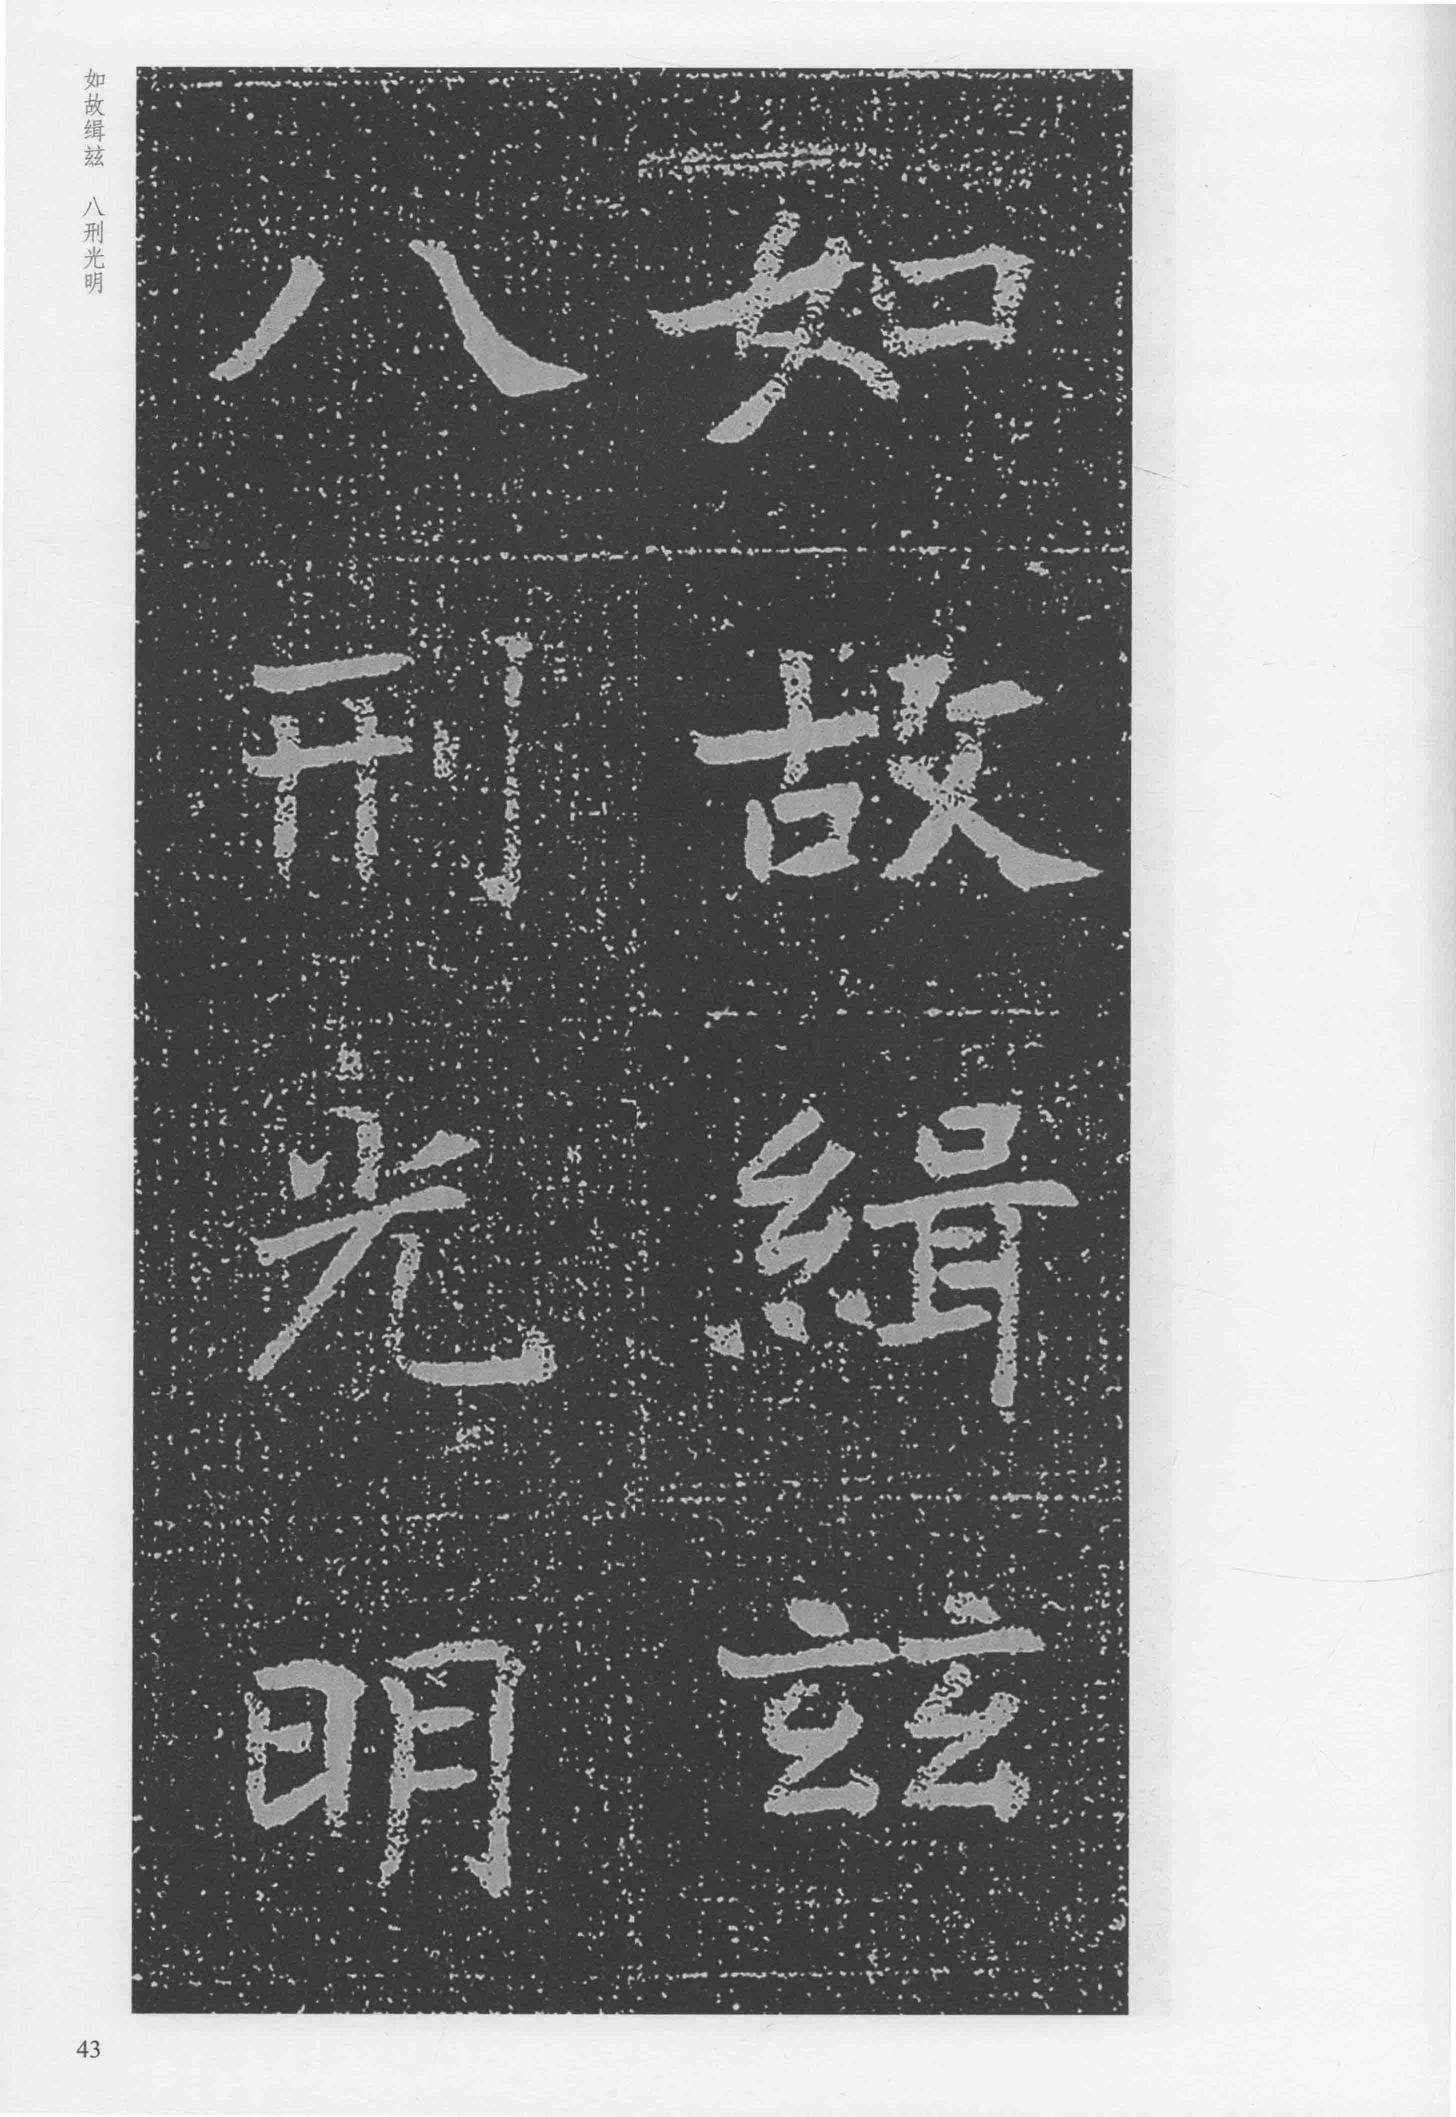 如故緝茲
八刑光明
如故缉兹 八刑光明
43